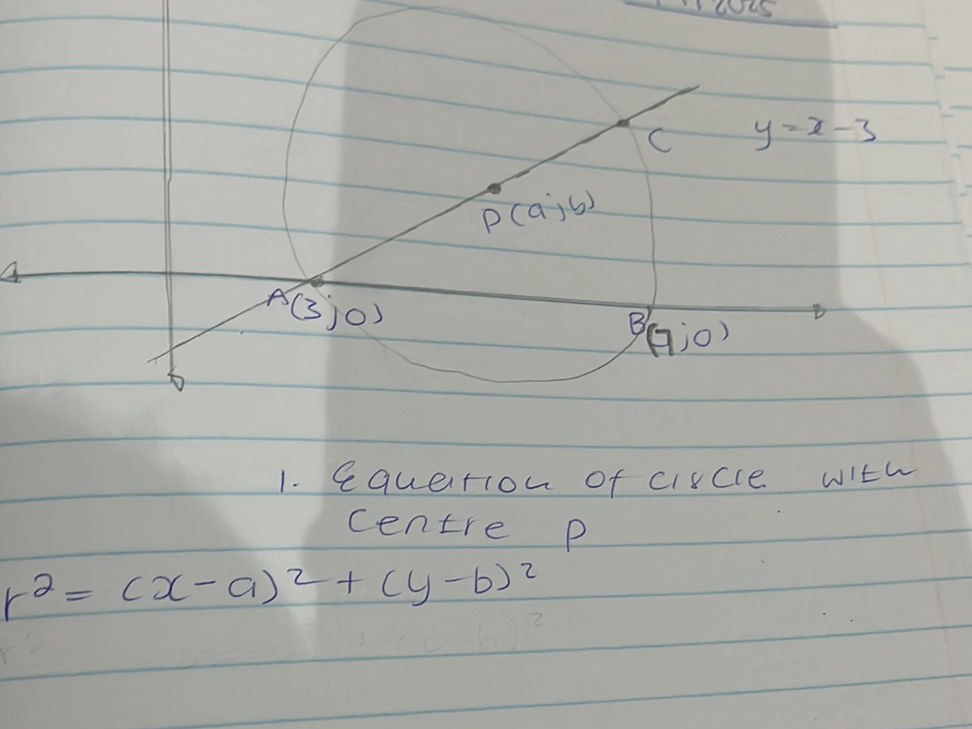 2025
C
y = x - 3
P(a;b)
A(3;0)
B(7;0)
1. Equation of circle with
Centre P
r² = (x-a)² + (y-b)²